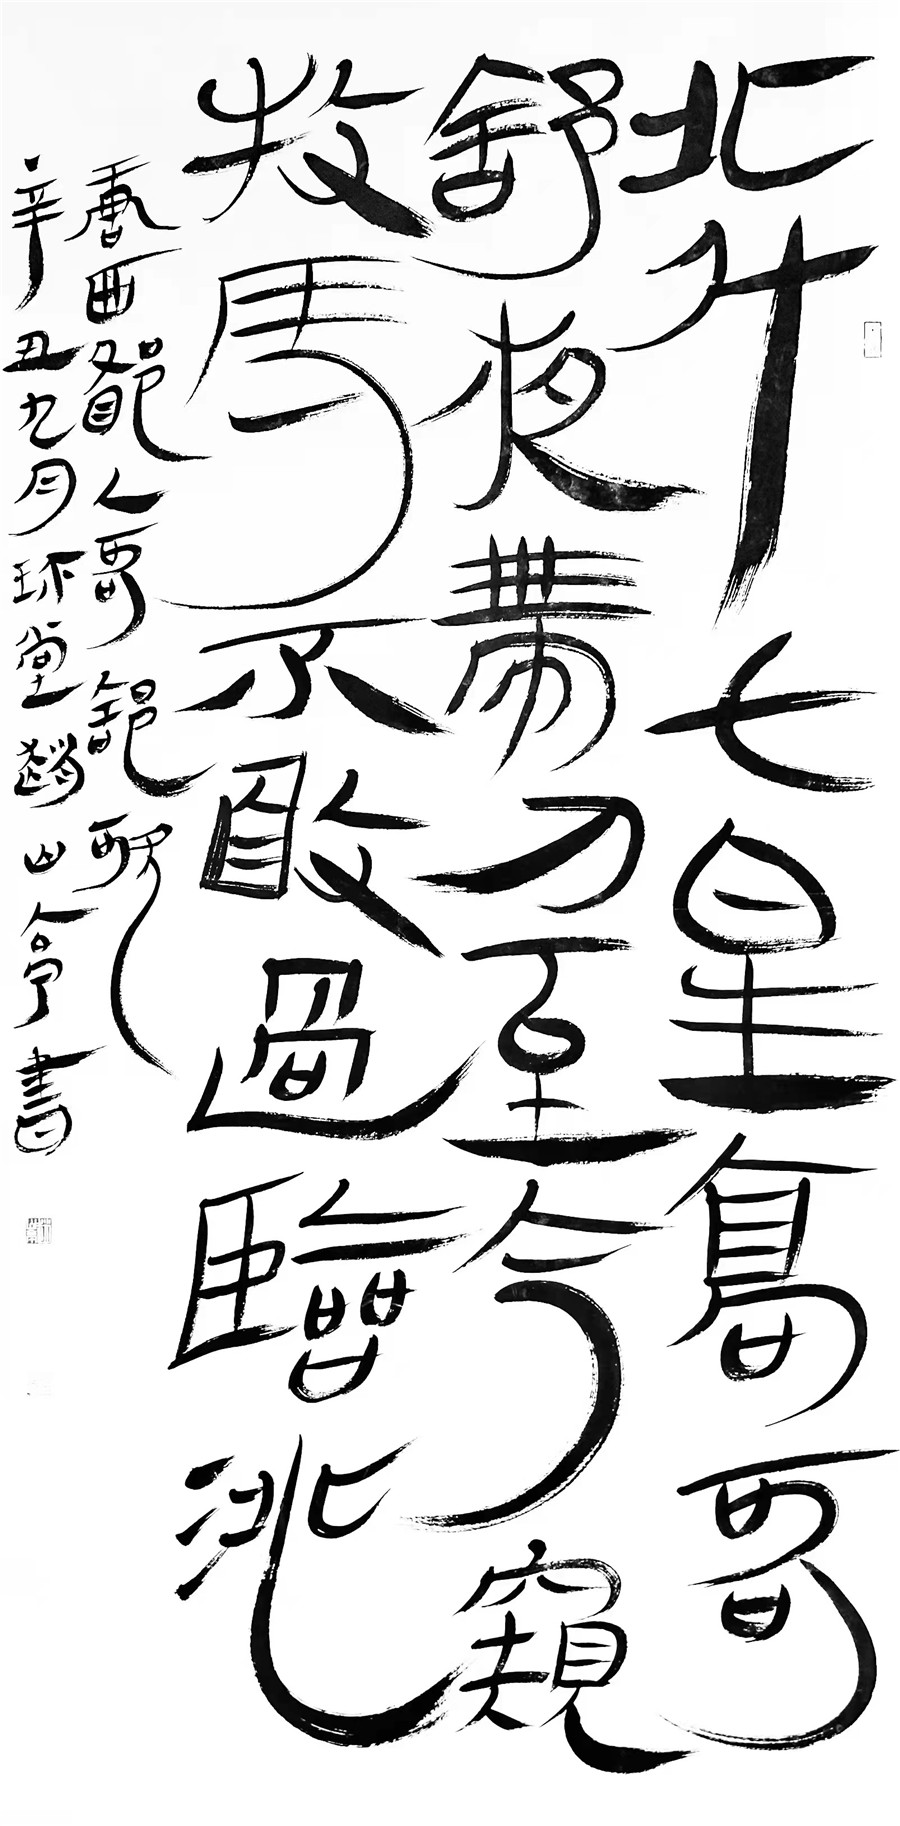 北斗七星高哥
舒夜帶刀至今窺
牧馬不敢過臨洮
唐西鄙人哥舒歌
辛丑九月环堂鄒山亭書